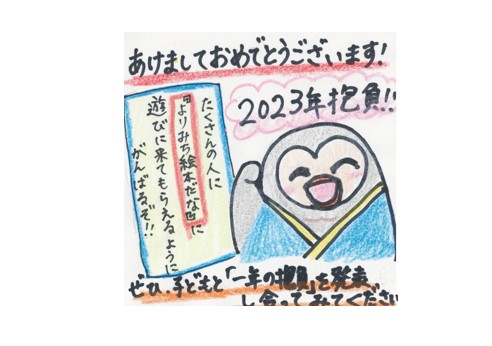 あけましておめでとうございます!
2023年抱負!!
たくさんの人に
『よりみち絵本だな』に
遊びに来てもらえるように
がんばるぞ!!
ぜひ、子どもと「一年の抱負」を発表
し合ってみてください